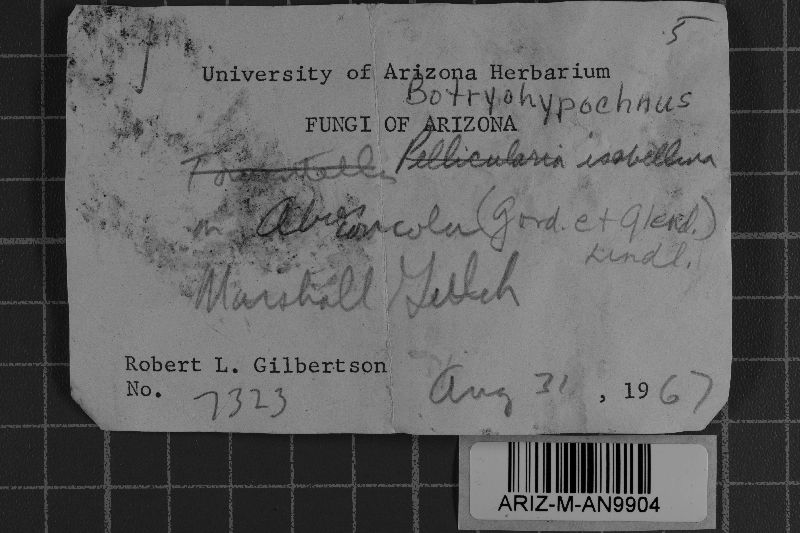 5
University of Arizona Herbarium
Botryohypochnus
FUNGI OF ARIZONA
Tomentella Pellicularia isabellina
on Abies concolor (Gord. et Glend.)
Lindl.
Marshall Gulch
Robert L. Gilbertson
No. 7323
Aug 31, 1967
ARIZ-M-AN9904